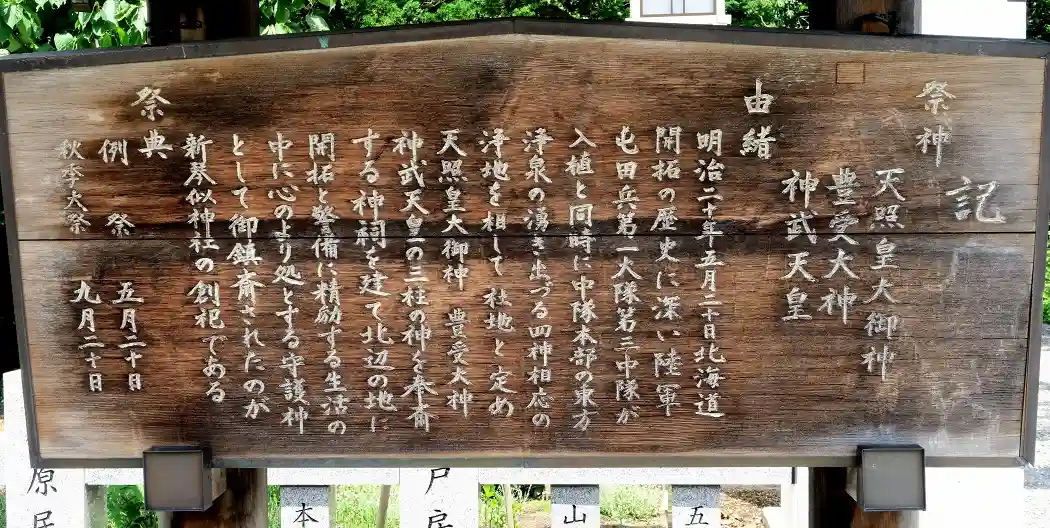 記
祭神
天照皇大御神
豊受大神
神武天皇
由緒
明治二十年五月二十日北海道
開拓の歴史に深い陸軍
屯田兵第一大隊第三中隊が
入植と同時に中隊本部の東方
浄泉の湧き出づる四神相応の
浄地を相して社地と定め
天照皇大御神 豊受大神
神武天皇の三柱の神を奉斎
する神祠を建て北辺の地に
開拓と警備に精励する生活の
中に心のより処とする守護神
として御鎮斎されたのが
新琴似神社の創祀である
祭典
例祭 五月二十日
秋季大祭 九月二十日
原
居
本
戸
房
山
五